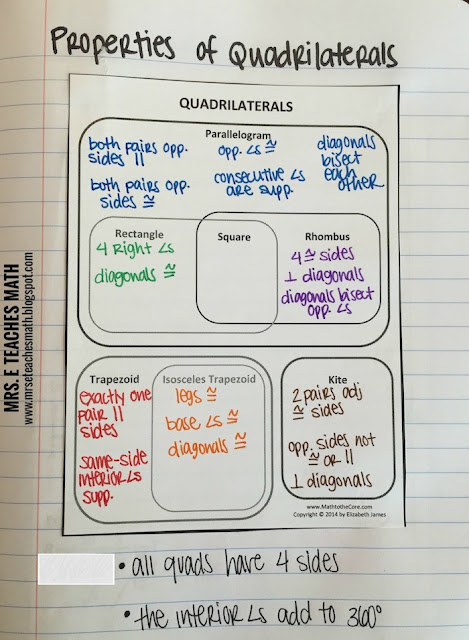 Properties of Quadrilaterals
QUADRILATERALS
Parallelogram
both pairs opp.
sides ||
both pairs opp.
sides ≅
opp. ∠s ≅
consecutive ∠s
are supp.
diagonals
bisect
each
other
Rectangle
4 Right ∠s
diagonals ≅
Square
Rhombus
4 ≅ sides
⊥ diagonals
diagonals bisect
opp. ∠s
Trapezoid
exactly one
pair ||
sides
same-side
interior ∠s
supp.
Isosceles Trapezoid
legs ≅
base ∠s ≅
diagonals ≅
Kite
2 pairs adj
≅ sides
opp. sides not
≅ or ||
⊥ diagonals
www.MathtotheCore.com
Copyright © 2014 by Elizabeth James
• all quads have 4 sides
• the interior ∠s add to 360°
MRS. E TEACHES MATH
www.mrseteachesmath.blogspot.com